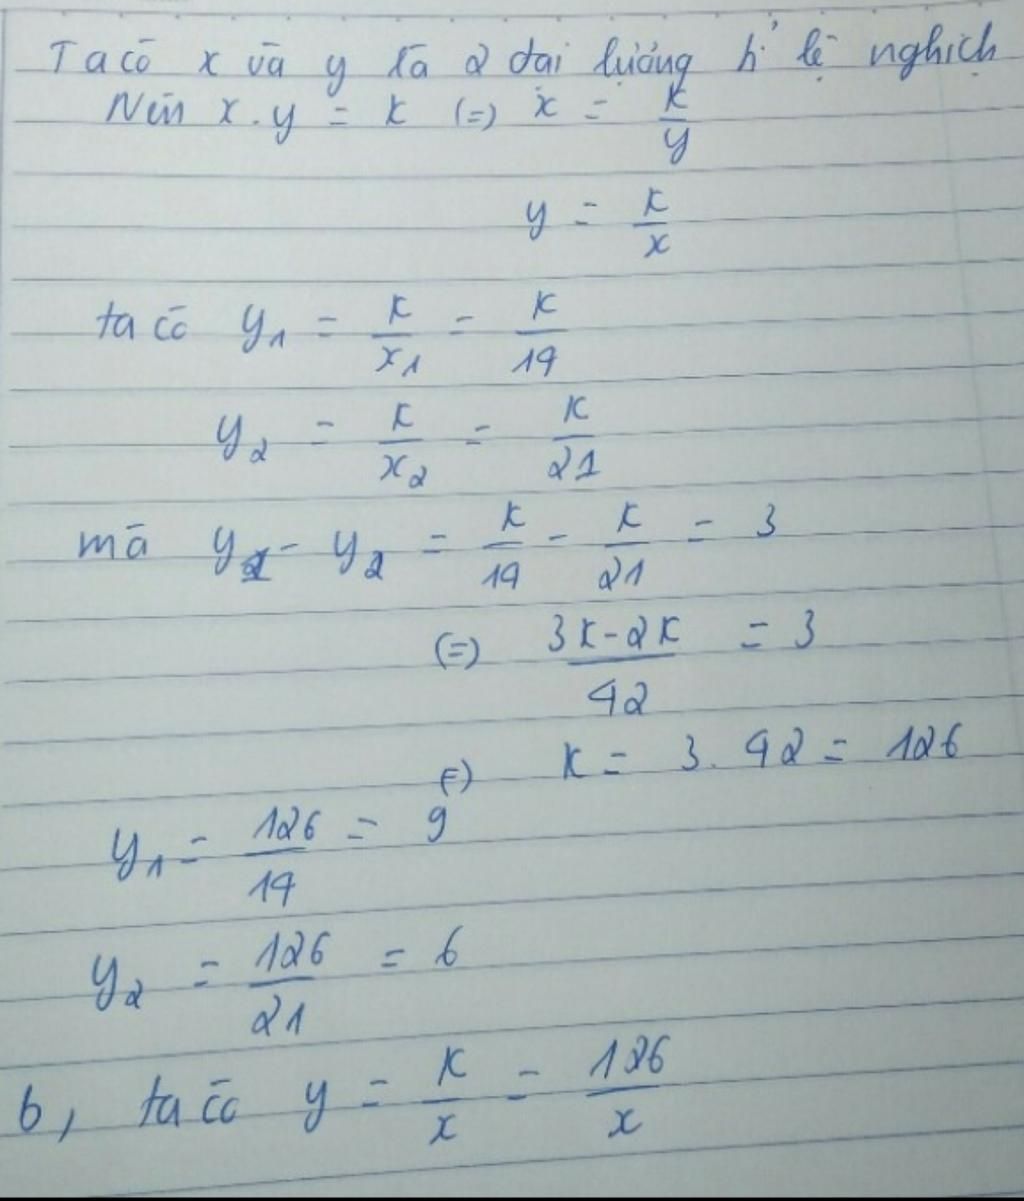 Ta có x và y là 2 đại lượng tỉ lệ nghịch
Nên x.y = k (=) x = k/y
y = k/x
ta có y₁ = k/x₁ = k/14
y₂ = k/x₂ = k/21
mà y₁ - y₂ = k/14 - k/21 = 3
(=) (3k-2k)/42 = 3
(=) k = 3.42 = 126
y₁ = 126/14 = 9
y₂ = 126/21 = 6
b, ta có y = k/x = 126/x